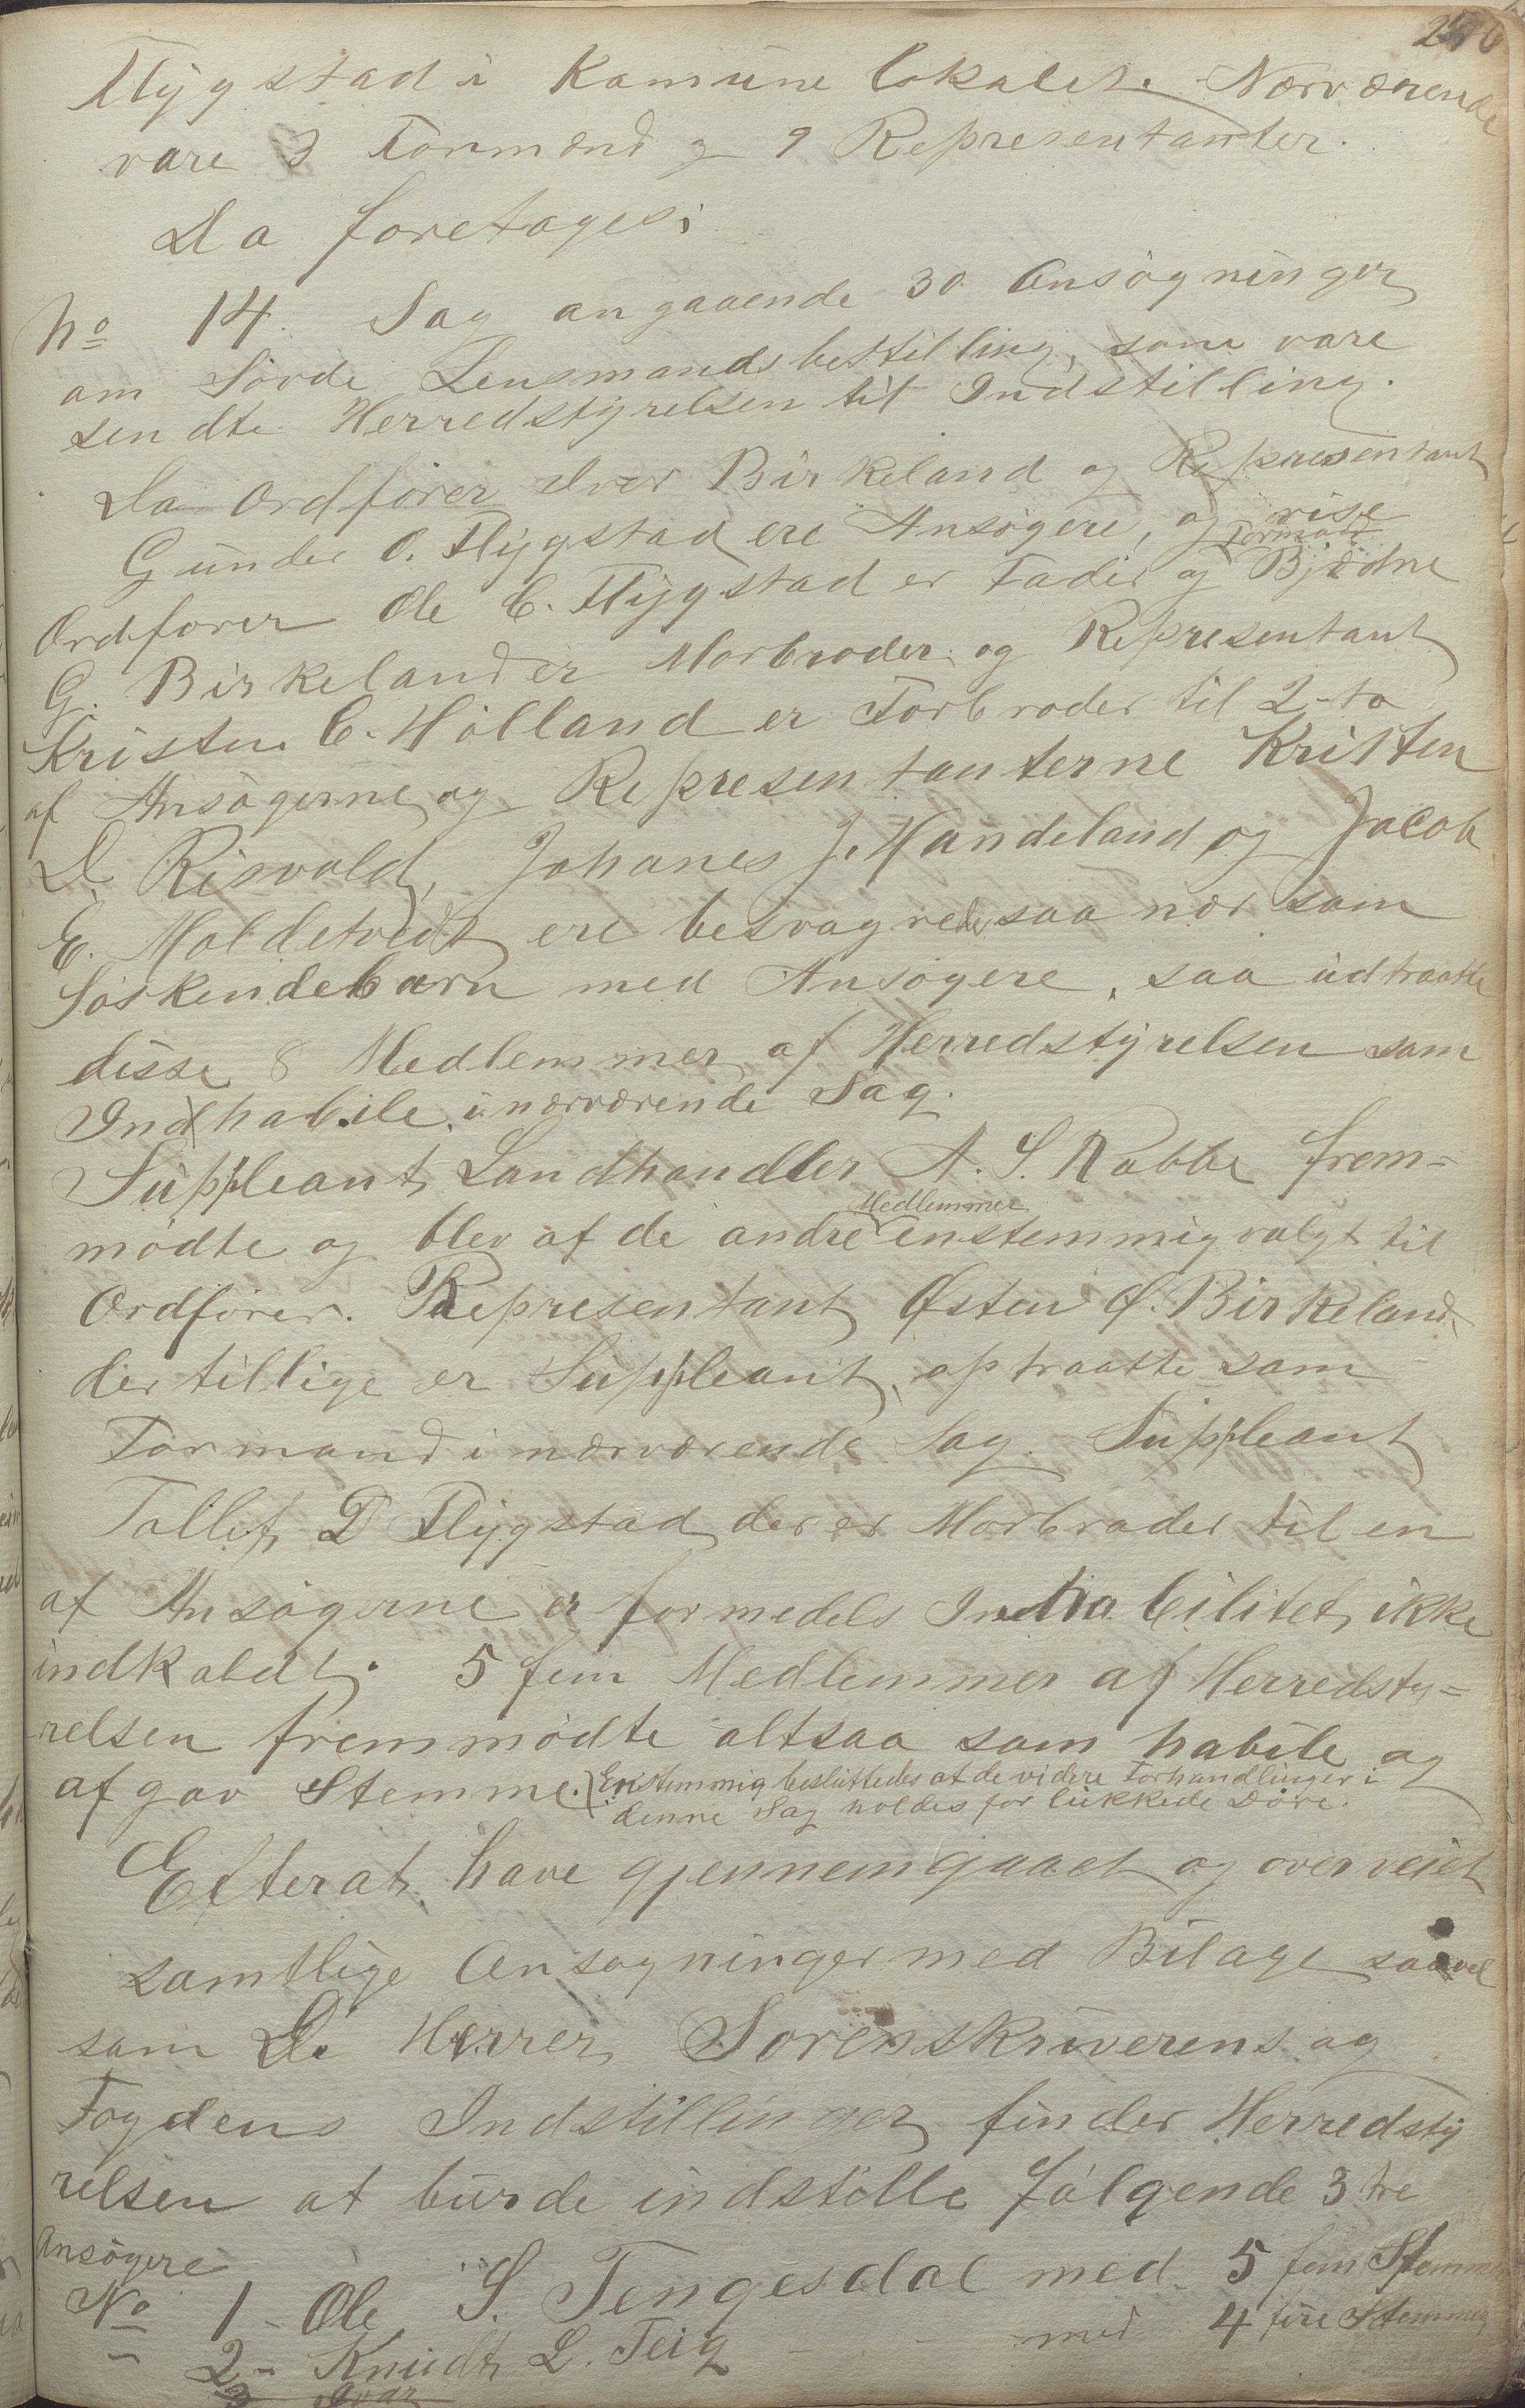 Flÿgstad i Kamune lokalet. Nærværende
vare 3 Formænd og 9 Representanter.
Da foretoges;
No 14. Sag angaaende 30 Ansøgninger
om Søvde Lensmandsbestilling, som vare
sendte Herredstÿrelsen til Indstilling.
Da Ordfører Iver Birkeland og Representant
Gunder O. Flÿgstad ere Ansøgere, og vise
Ordfører Ole C. Flÿgstad er Fader og Formand Bjødne
G. Birkeland er Morbroder og Representant
Kristen C. Hølland er Forbroder til 2-to
af Ansøgerne, og Representanterne Kristen
D. Risvold, Johanes J. Handeland og Jacob
E. Moldetvedt ere besvogrede saa nær som
Søskendebarn med Ansøgere, saa udtraatte
disse 8 Medlemmer af Herredstÿrelsen som
Indhabile i nærværende Sag.
Suppleant, Landhandler A. S. Rabbe frem-
mødte og blev af de andre Medlemmer enstemmig valgt til
Ordfører. Representant Østen Ø. Birkeland,
der tillige er Suppleant, optraatte som
Formand i nærværende Sag. Suppleant
Tollef D Flÿgstad der er Morbroder til en
af Ansøgerne er formedels Inhabilitet ikke
indkaldt. 5 fem Medlemmer af Herredsty-
relsen fremmødte altsaa som habile og
afgav Stemme. Enstemmig besluttedes at de videre Forhandlinger i
denne Sag holdes for lukkede Døre.
Efterat have gjennemgaaet og overveiet
samtlige Ansøgninger med Bilage saavel
som De Herrer Sorenskriverens og
Fogdens Indstillinger finder Herredstÿ
relsen at burde indstille følgende 3 tre
Ansøgere
No 1 - Ole S. Tengesdal med 5 fem Stemmer
" 2 - Knudt L. Teig - med 4 fire Stemmer